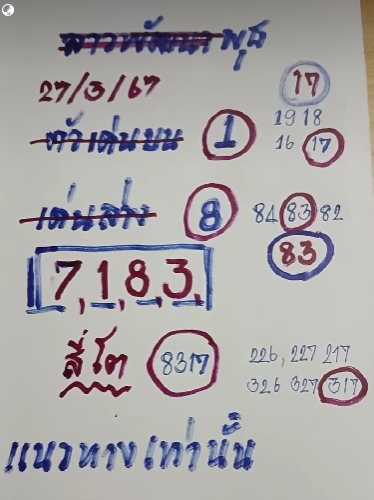 ลาวพัฒนา พุธ
27/3/67
17
19 18
ตัวเด่นบน 1 16 17
เด่นล่าง 8 84 83 82
83
7,1,8,3,
สี่โต 8317
226, 227 217
326 327 317
แนวทางเท่านั้น